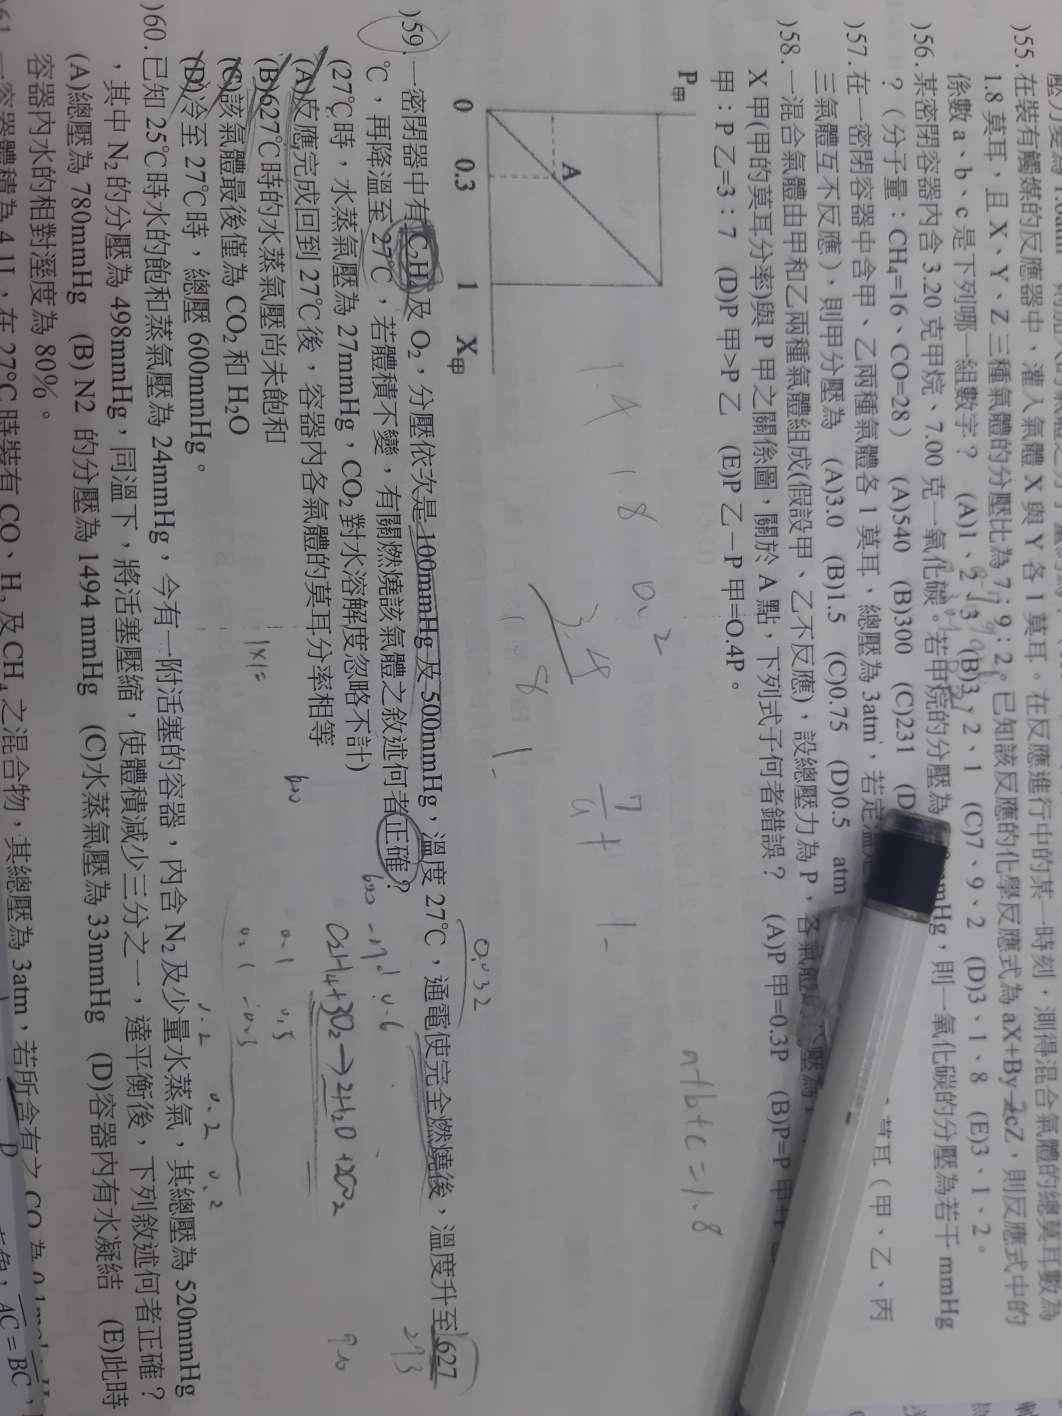 )55.在裝有觸媒的反應器中，灌入氣體 X 與 Y 各 1 莫耳。在反應進行中的某一時刻，測得混合氣體的總莫耳數為
1.8 莫耳，且 X、Y、Z 三種氣體的分壓比為 7：9：2。已知該反應的化學反應式為 aX+By→cZ，則反應式中的
係數 a、b、c 是下列哪一組數字？ (A)1、2、3 (B)3、2、1 (C)7、9、2 (D)3、1、8 (E)3、1、2。
)56.某密閉容器內含 3.20 克甲烷、7.00 克一氧化碳。若甲烷的分壓為 mmHg，則一氧化碳的分壓為若干 mmHg
？（分子量：CH₄=16、CO=28） (A)540 (B)300 (C)231 (D
)57.在一密閉容器中含甲、乙兩種氣體各 1 莫耳，總壓為 3atm，若定溫 莫耳（甲、乙、丙
三氣體互不反應），則甲分壓為 (A)3.0 (B)1.5 (C)0.75 (D)0.5 atm
)58.一混合氣體由甲和乙兩種氣體組成(假設甲、乙不反應)，設總壓力為 P，各氣體
X 甲(甲的莫耳分率)與 P 甲之關係圖，關於 A 點，下列式子何者錯誤？ (A)P 甲=0.3P (B)P=P 甲+P
甲：P 乙=3：7 (D)P 甲>P 乙 (E)P 乙－P 甲=0.4P。
P甲
A
0 0.3 1 X甲
1.4 1.8 0.2
3.4
1.8
a+b+c=1.8
)59.一密閉器中有 C₂H₄ 及 O₂，分壓依次是 100mmHg 及 500mmHg，溫度 27℃，通電使完全燃燒後，溫度升至 627
℃，再降溫至 27℃，若體積不變，有關燃燒該氣體之敘述何者正確？
(27℃時，水蒸氣壓為 27mmHg，CO₂ 對水溶解度忽略不計)
(A)反應完成回到 27℃後，容器內各氣體的莫耳分率相等
(B)627℃時的水蒸氣壓尚未飽和
(C)該氣體最後僅為 CO₂ 和 H₂O
(D)冷至 27℃時，總壓 600mmHg。
0.032
C₂H₄+3O₂→2H₂O+2CO₂
0.1 0.5
0.1 -0.3
0.2 0.2 0.2
600
1×1=
293
900
)60.已知 25℃時水的飽和蒸氣壓為 24mmHg，今有一附活塞的容器，內含 N₂ 及少量水蒸氣，其總壓為 520mmHg
，其中 N₂ 的分壓為 498mmHg，同溫下，將活塞壓縮，使體積減少三分之一，達平衡後，下列敘述何者正確？
(A)總壓為 780mmHg (B) N2 的分壓為 1494 mmHg (C)水蒸氣壓為 33mmHg (D)容器內有水凝結 (E)此時
容器內水的相對溼度為 80%。
一容器體積為 4.1L，在 27℃時裝有 CO、H₂ 及 CH₄ 之混合物，其總壓為 3atm，若所含有之 CO 為 0.1mol
D
AC = BC